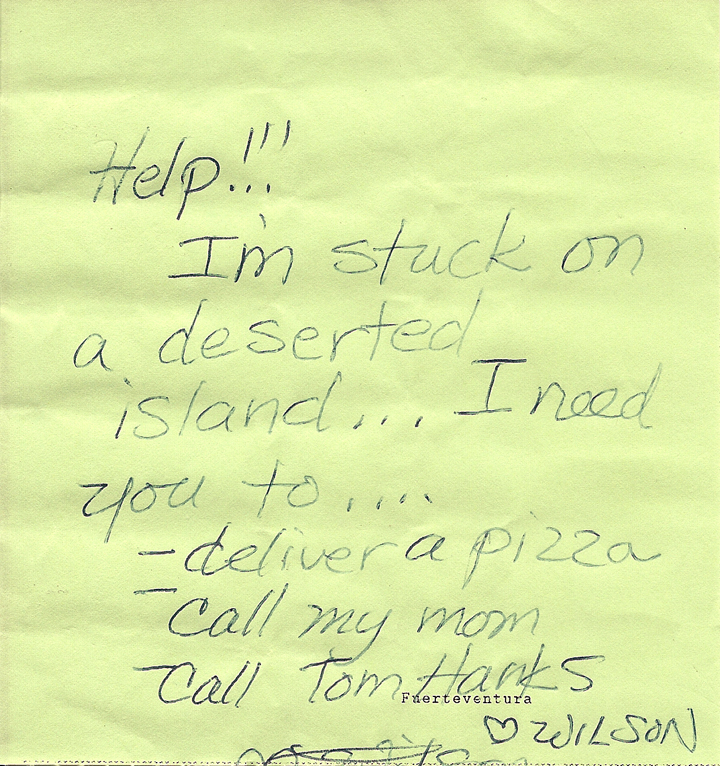 Help!!!
I'm stuck on
a deserted
island... I need
you to....
- deliver a pizza
- Call my mom
- Call Tom Hanks
Fuerteventura
♡ WILSON